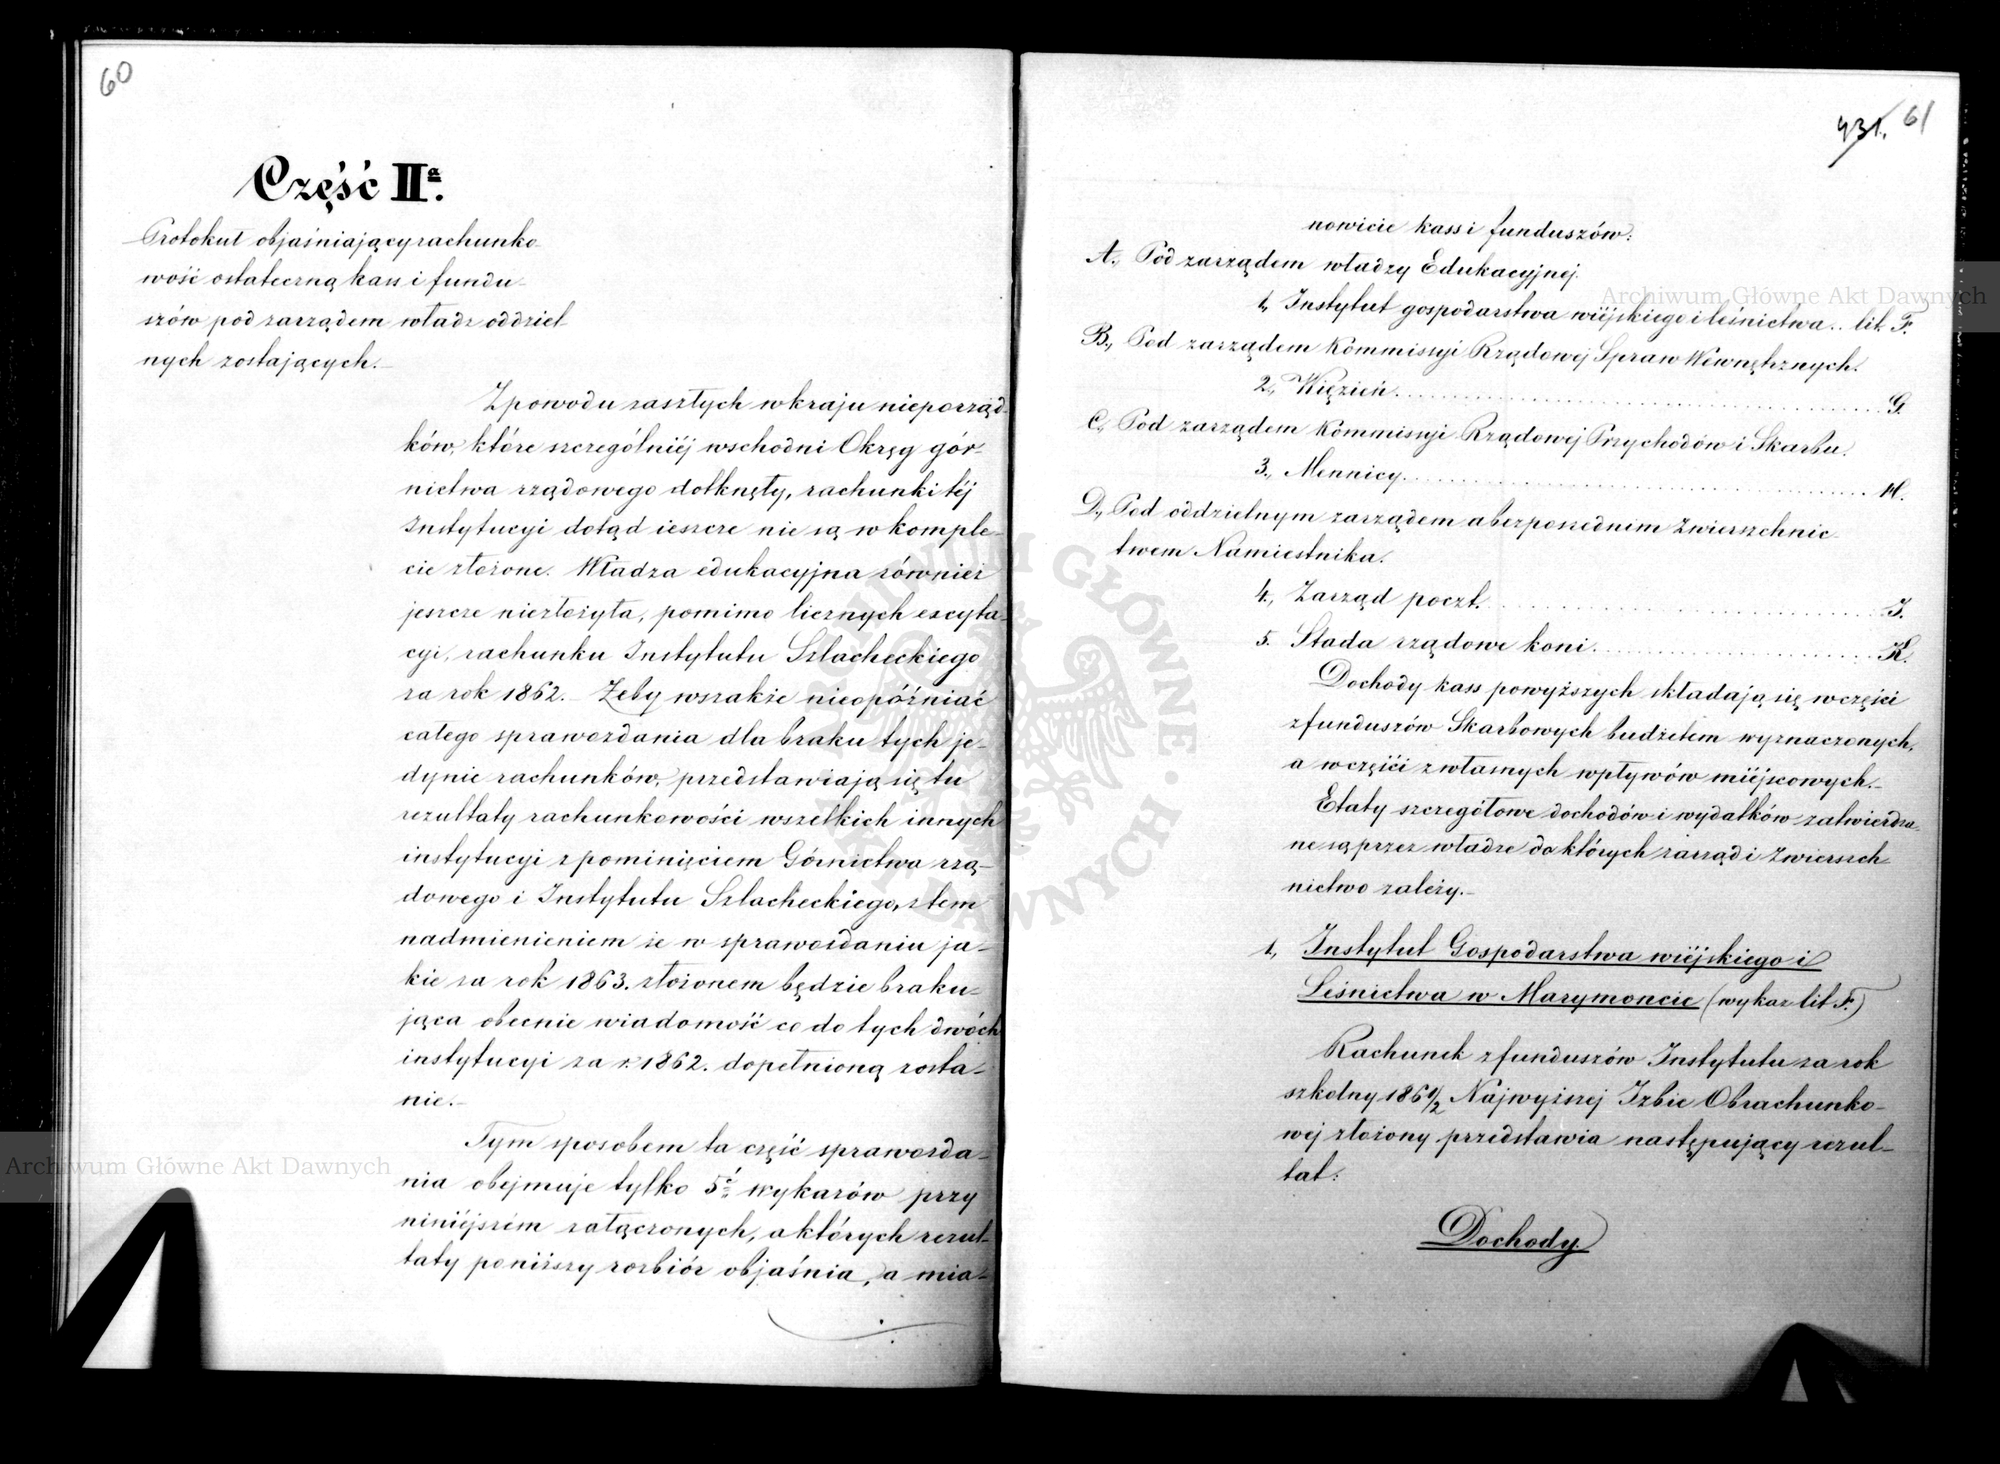 60
Część IIª.
Protokuł objaśniający rachunko-
wość ostateczną kass i fundu-
szów pod zarządem władz oddziel-
nych zostających.
Z powodu zaszłych w kraju nieporząd-
ków, które szczególniéj wschodni Okręg gór-
nictwa rządowego dotknęły, rachunki téj
Instytucyi dotąd ieszcze nie są w komple-
cie złożone. Władza edukacyjna również
jeszcze niezłożyła, pomimo licznych excyta-
cyi, rachunku Instytutu Szlacheckiego
za rok 1862. Żeby wszakże nieopóźniać
całego sprawozdania dla braku tych je-
dynie rachunków, przedstawiają się tu
rezultaty rachunkowości wszelkich innych
instytucyi z pominięciem Górnictwa rzą-
dowego i Instytutu Szlacheckiego, z tem
nadmienieniem że w sprawozdaniu ja-
kie za rok 1863. złożonem będzie braku-
jąca obecnie wiadomość co do tych dwóch
instytucyi za r. 1862. dopełnioną zosta-
nie.
Tym sposobem ta część sprawozda-
nia obejmuje tylko 5ć wykazów przy
niniéjszém załączonych, a których rezul-
taty poniższy rozbiór objaśnia, a mia-
431. 61
nowicie kass i funduszów:
A., Pod zarządem władzy Edukacyjnej.
1., Instytut gospodarstwa wiéjskiego i leśnictwa.. lit. F.
B., Pod zarządem Kommissyi Rządowej Spraw Wewnętrznych.
2., Więzień. G.
C., Pod zarządem Kommissyi Rządowej Przychodów i Skarbu.
3., Mennicy. H.
D., Pod oddzielnym zarządem a bezpośrednim Zwierzchnic-
twem Namiestnika.
4., Zarząd poczt. I.
5. Stada rządowe koni. K.
Dochody kass powyższych składają się w części
z funduszów Skarbowych budżetem wyznaczonych,
a w części z własnych wpływów miéjscowych.
Etaty szczegółowe dochodów i wydatków zatwierdza-
ne są przez władze do których zarząd i Zwierzch-
nictwo należy.
1., Instytut Gospodarstwa wiéjskiego i
Leśnictwa w Marymoncie (wykaz lit. F.)
Rachunek z funduszów Instytutu za rok
szkolny 1861/2 Najwyższej Izbie Obrachunko-
wej złożony przedstawia następujący rezul-
tat:
Dochody.
Archiwum Główne Akt Dawnych
Archiwum Główne Akt Dawnych